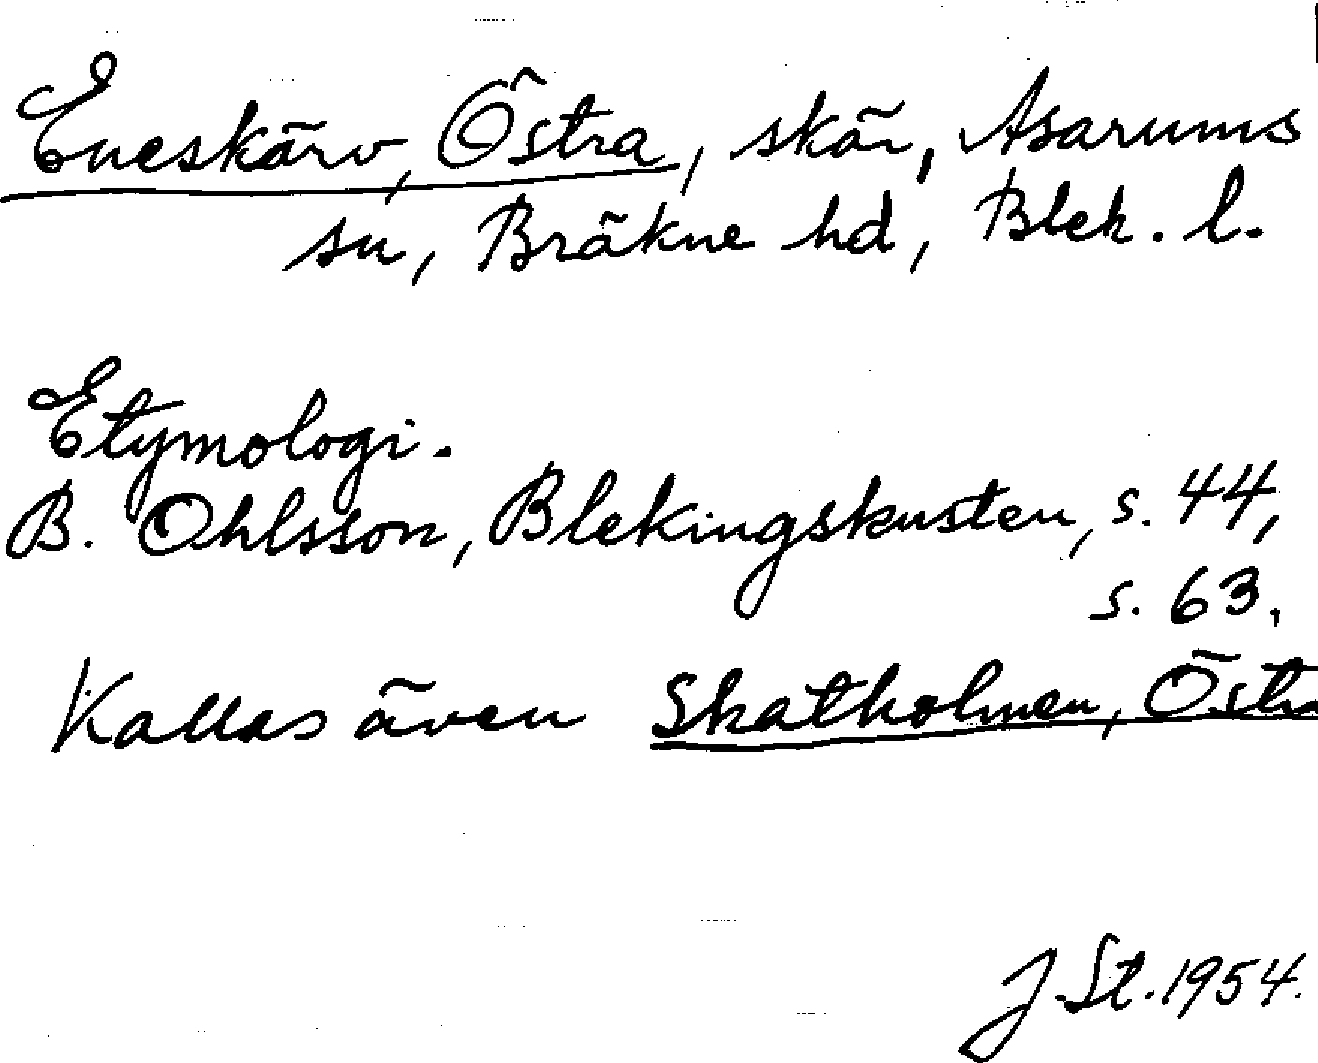 Eneskärv, Östra, skär, Asarums
sn, Bräkne hd, Blek. l.
Etymologi.
B. Ohlsson, Blekingskusten, s. 44,
s. 63.
Kallas även Skatholmen, Östra
J. St. 1954.